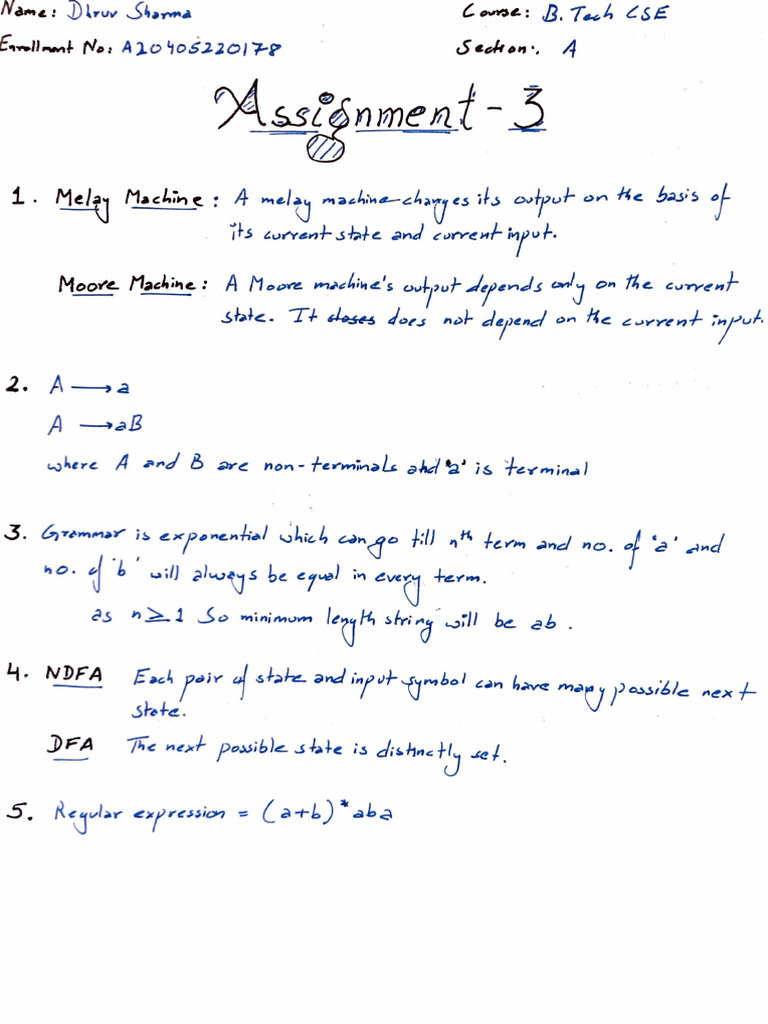 Name: Dhruv Sharma Course: B. Tech CSE
Enrollment No: A20405220178 Section: A
Assignment - 3
1. Melay Machine: A melay machine changes its output on the basis of
its current state and current input.
Moore Machine: A Moore machine's output depends only on the current
state. It does not depend on the current input.
2. A ⟶ a
A ⟶ aB
where A and B are non-terminals and 'a' is terminal
3. Grammar is exponential which can go till nth term and no. of 'a' and
no. of 'b' will always be equal in every term.
as n ≥ 1 So minimum length string will be ab.
4. NDFA Each pair of state and input symbol can have many possible next
state.
DFA The next possible state is distinctly set.
5. Regular expression = (a+b)*aba